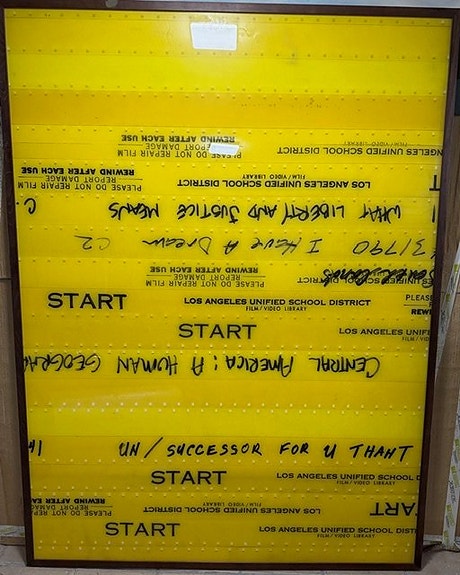 PLEASE DO NOT REPAIR FILM
REPORT DAMAGE
REWIND AFTER EACH USE
ANGELES UNIFIED SCHOOL DISTRICT
FILM / VIDEO LIBRARY
PLEASE DO NOT REPAIR FILM
REPORT DAMAGE
REWIND AFTER EACH USE
LOS ANGELES UNIFIED SCHOOL DISTRICT
FILM / VIDEO LIBRARY
WHAT LIBERTY AND JUSTICE MEANS C.
31790 I Have A Dream C2
PLEASE DO NOT REPAIR FILM
REPORT DAMAGE
REWIND AFTER EACH USE
UNIFIED SCHOOL DISTRICT
START LOS ANGELES UNIFIED SCHOOL DISTRICT
FILM / VIDEO LIBRARY
PLEASE
REWI
START LOS ANGELES UNIFI
FILM / VID
CENTRAL AMERICA: A HUMAN GEOGRAP
UN / SUCCESSOR FOR U THANT
START LOS ANGELES UNIFIED SCHOOL D
FILM / VIDEO LIBRARY
ART LOS ANGELES UNIFIED SCHOOL DISTRICT
FILM / VIDEO LIBRARY
PLEASE DO NOT REPAIR FILM
REPORT DAMAGE
REWIND AFTER EACH USE
START LOS ANGELES UNIFIED SCHOOL DIST
FILM / VIDEO LIBRARY